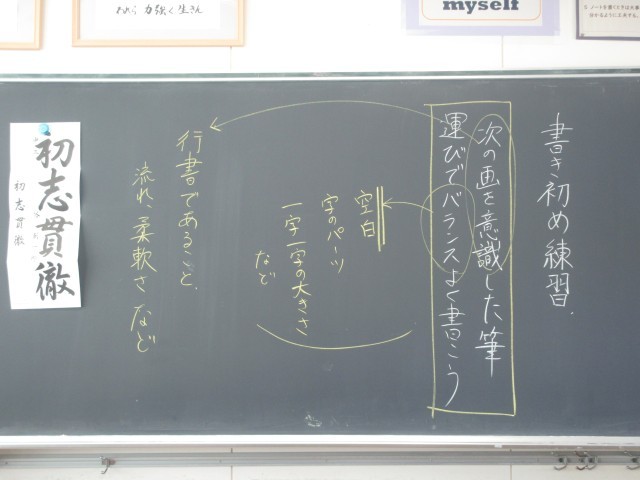 力強く生きん
myself
書き初め練習.
次の画を意識した筆
運びでバランスよく書こう
空白
字のパーツ
一字一字の大きさ
など
行書であること.
流れ、柔軟さ など
初志貫徹
初志貫徹